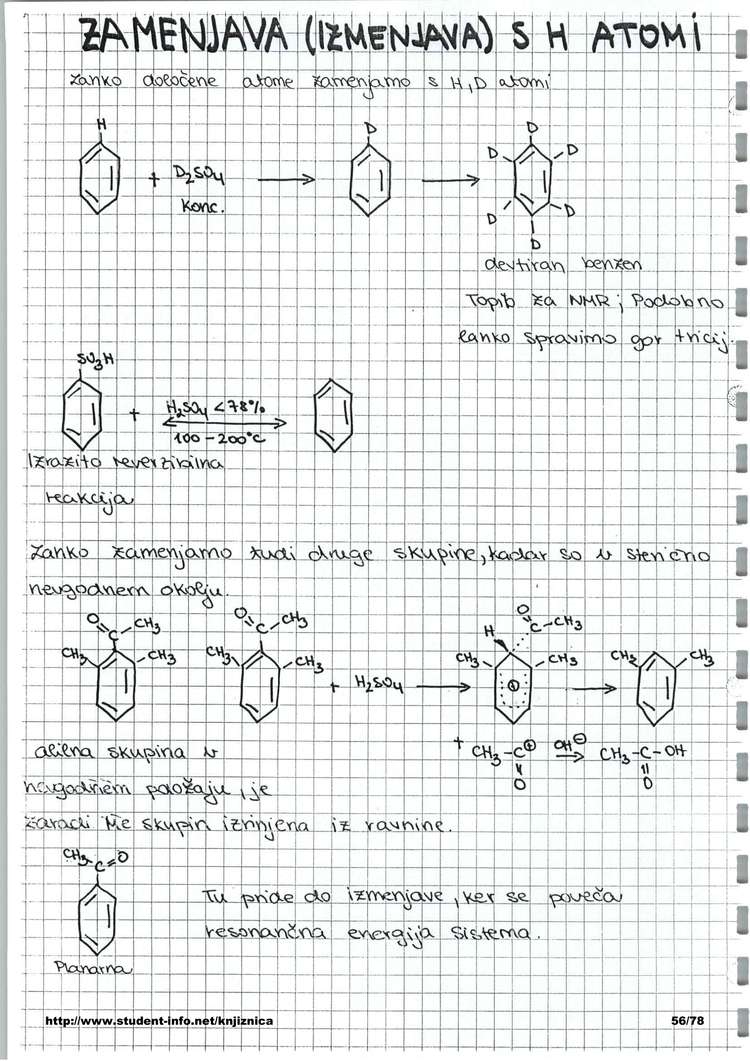 ZAMENJAVA (IZMENJAVA) S H ATOMI
Lahko določene atome zamenjamo s H, D atomi
H
+ D₂SO₄
konc.
D
D
D
D
D
D
D
devtiran benzen
Topilo za NMR; Podobno
lahko spravimo gor tricij.
SO₃H
+
H₂SO₄ < 78%
100-200°C
Izrazito reverzibilna
reakcija
Lahko zamenjamo tudi druge skupine, kadar so v sterično
neugodnem okolju.
O
C-CH₃
CH₃
CH₃
O
C-CH₃
CH₃
CH₃
+ H₂SO₄
H
O
C-CH₃
CH₃
CH₃
⊕
CH₃
CH₃
+ CH₃-C⊕
O
OH⊖
CH₃-C-OH
O
acilna skupina v
položaju, je
zaradi Me skupin izrinjena iz ravnine.
CH₃-C=O
Planarna
Tu pride do izmenjave, ker se poveča
resonančna energija sistema.
http://www.student-info.net/knjiznica
56/78